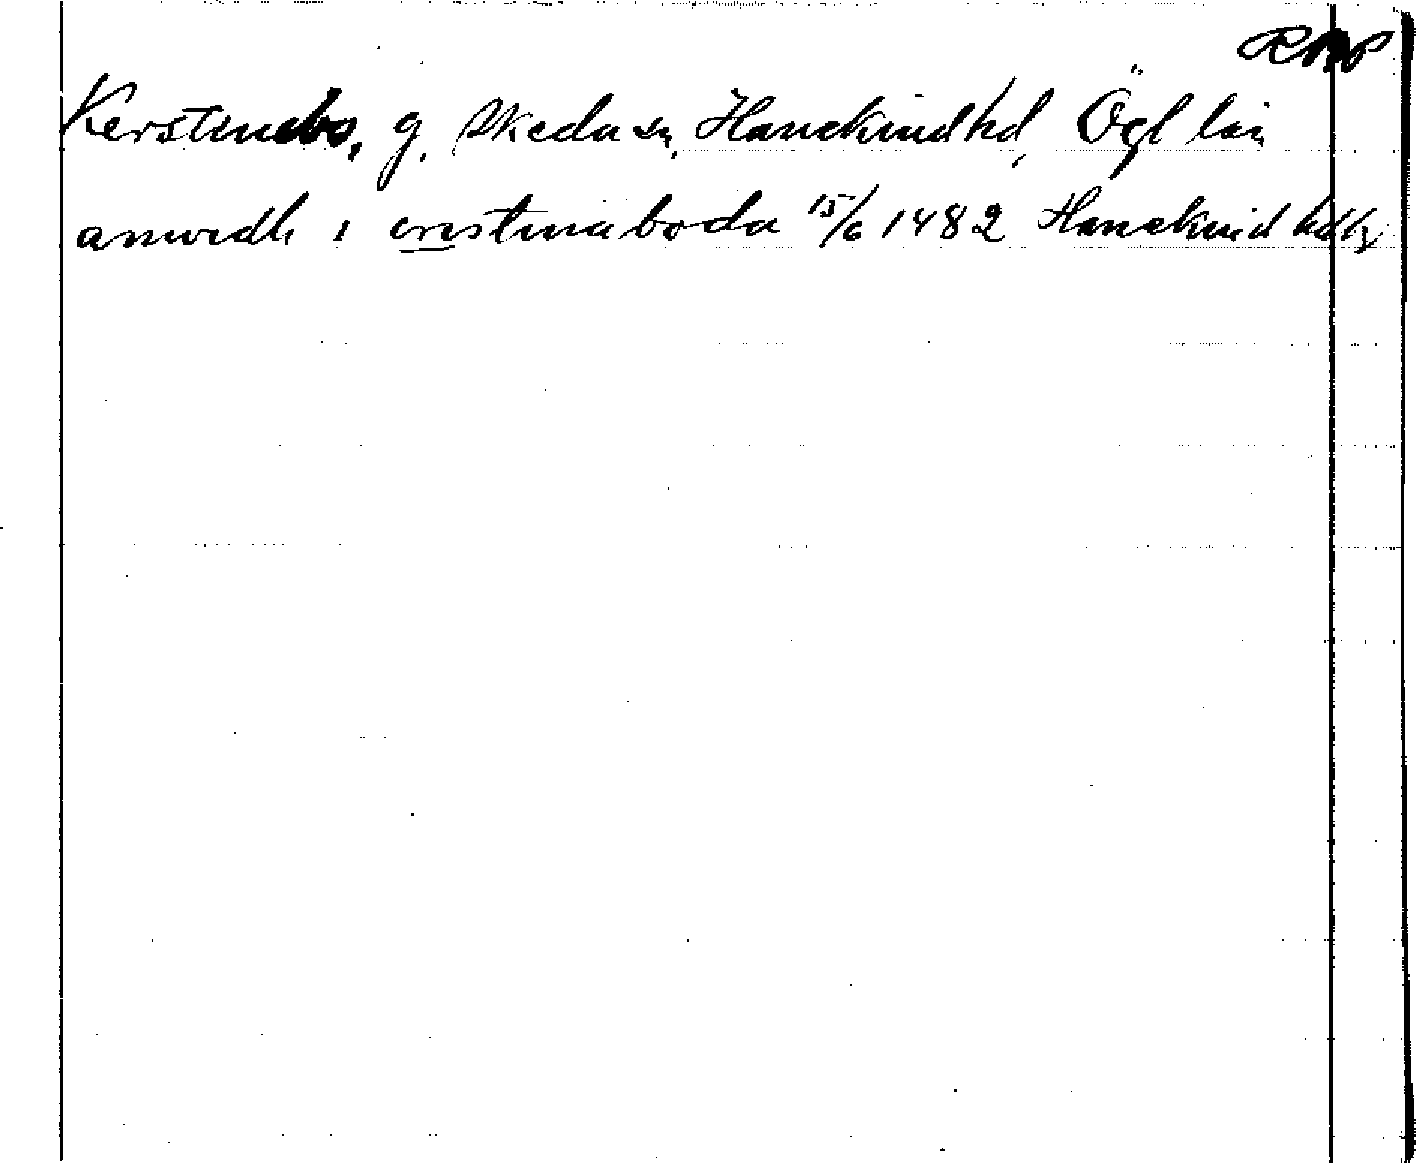 Kerstinebo, g. Skeda sn, Hanekind hd, Ögl län
arnwidh i cristinaboda 15/6 1482 Hanekind